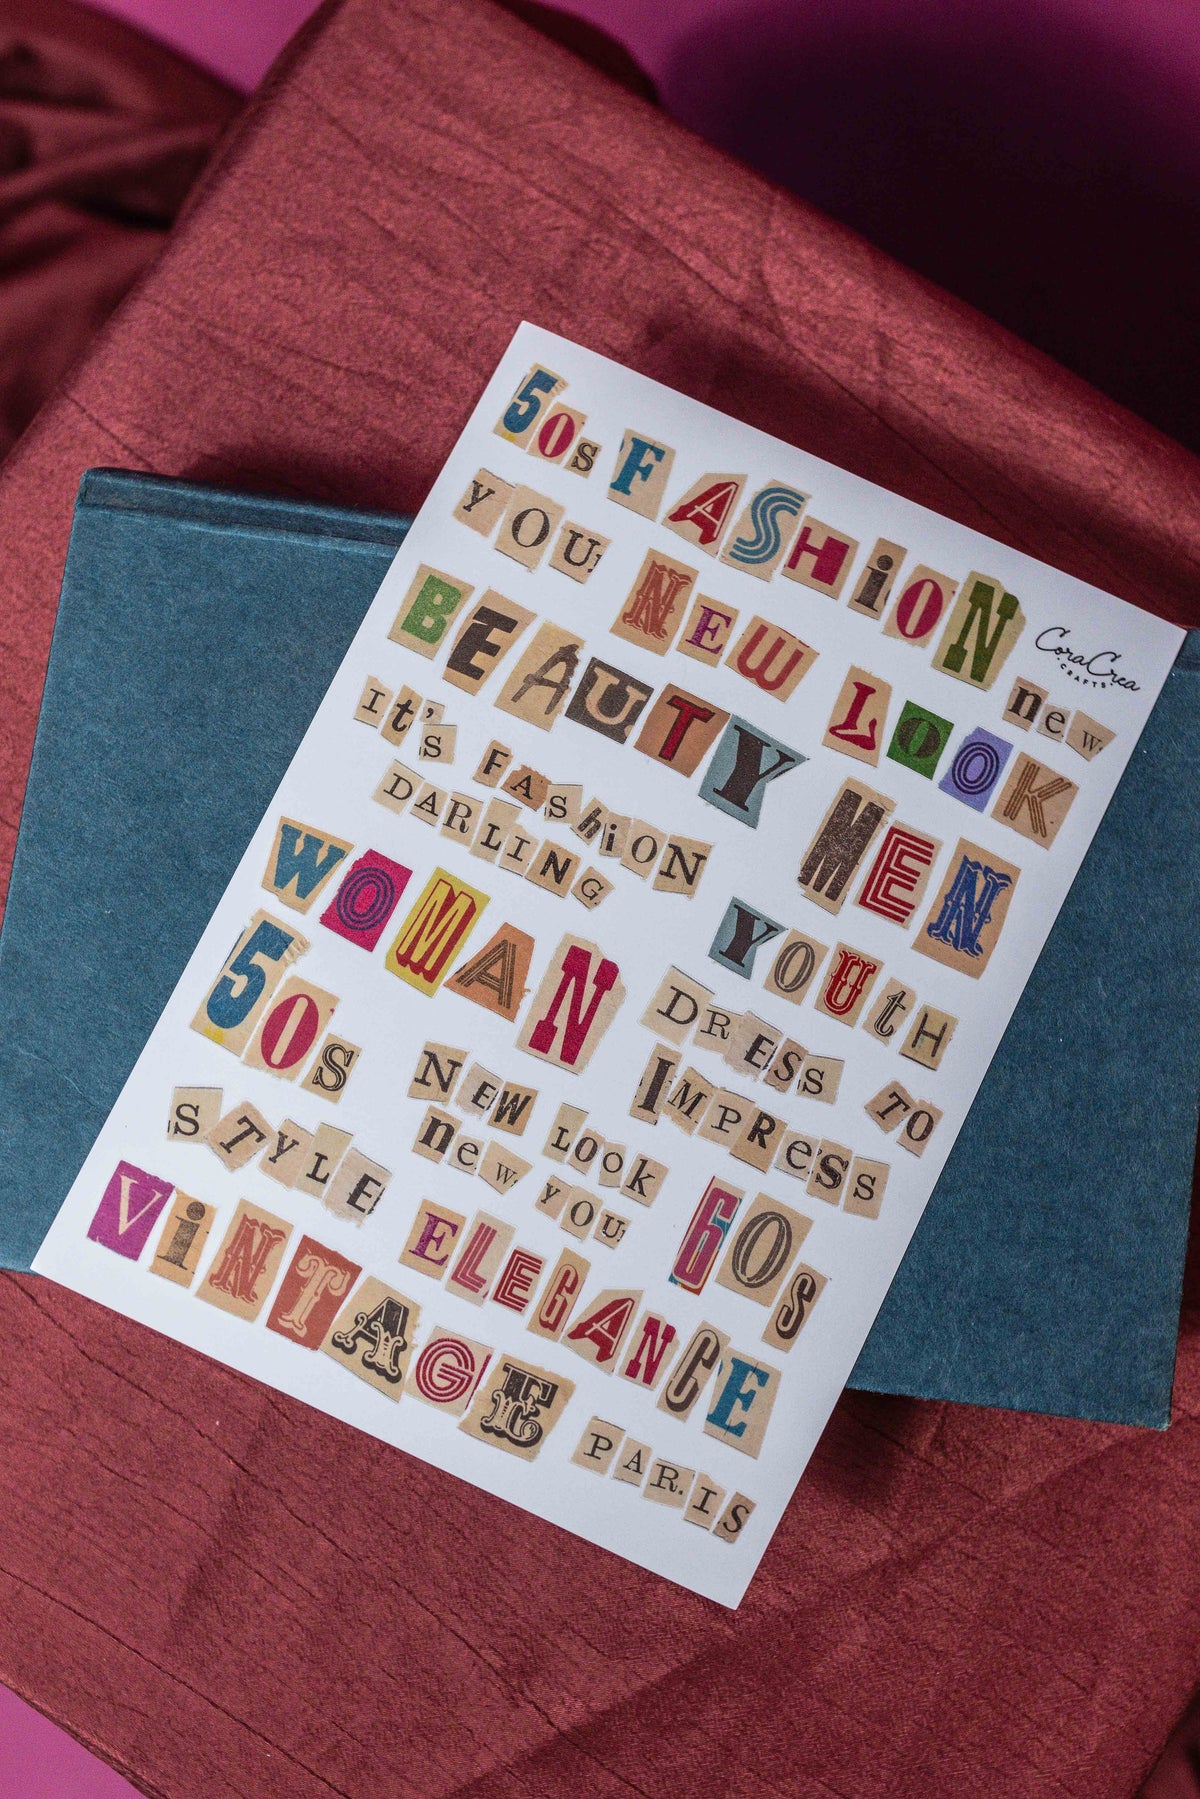 50s FASHiON
CoraCrea
CRAFTS
YOU! NEW LOOK
new
BEAUTY
It's FASHiON
DARLING
MEN
WOMAN
YOUtH
50s
DRESS TO
IMPRESS
NEW LOOK
new YOU!
STYLE
60s
ViNTAGE
ELEGANCE
PARIS